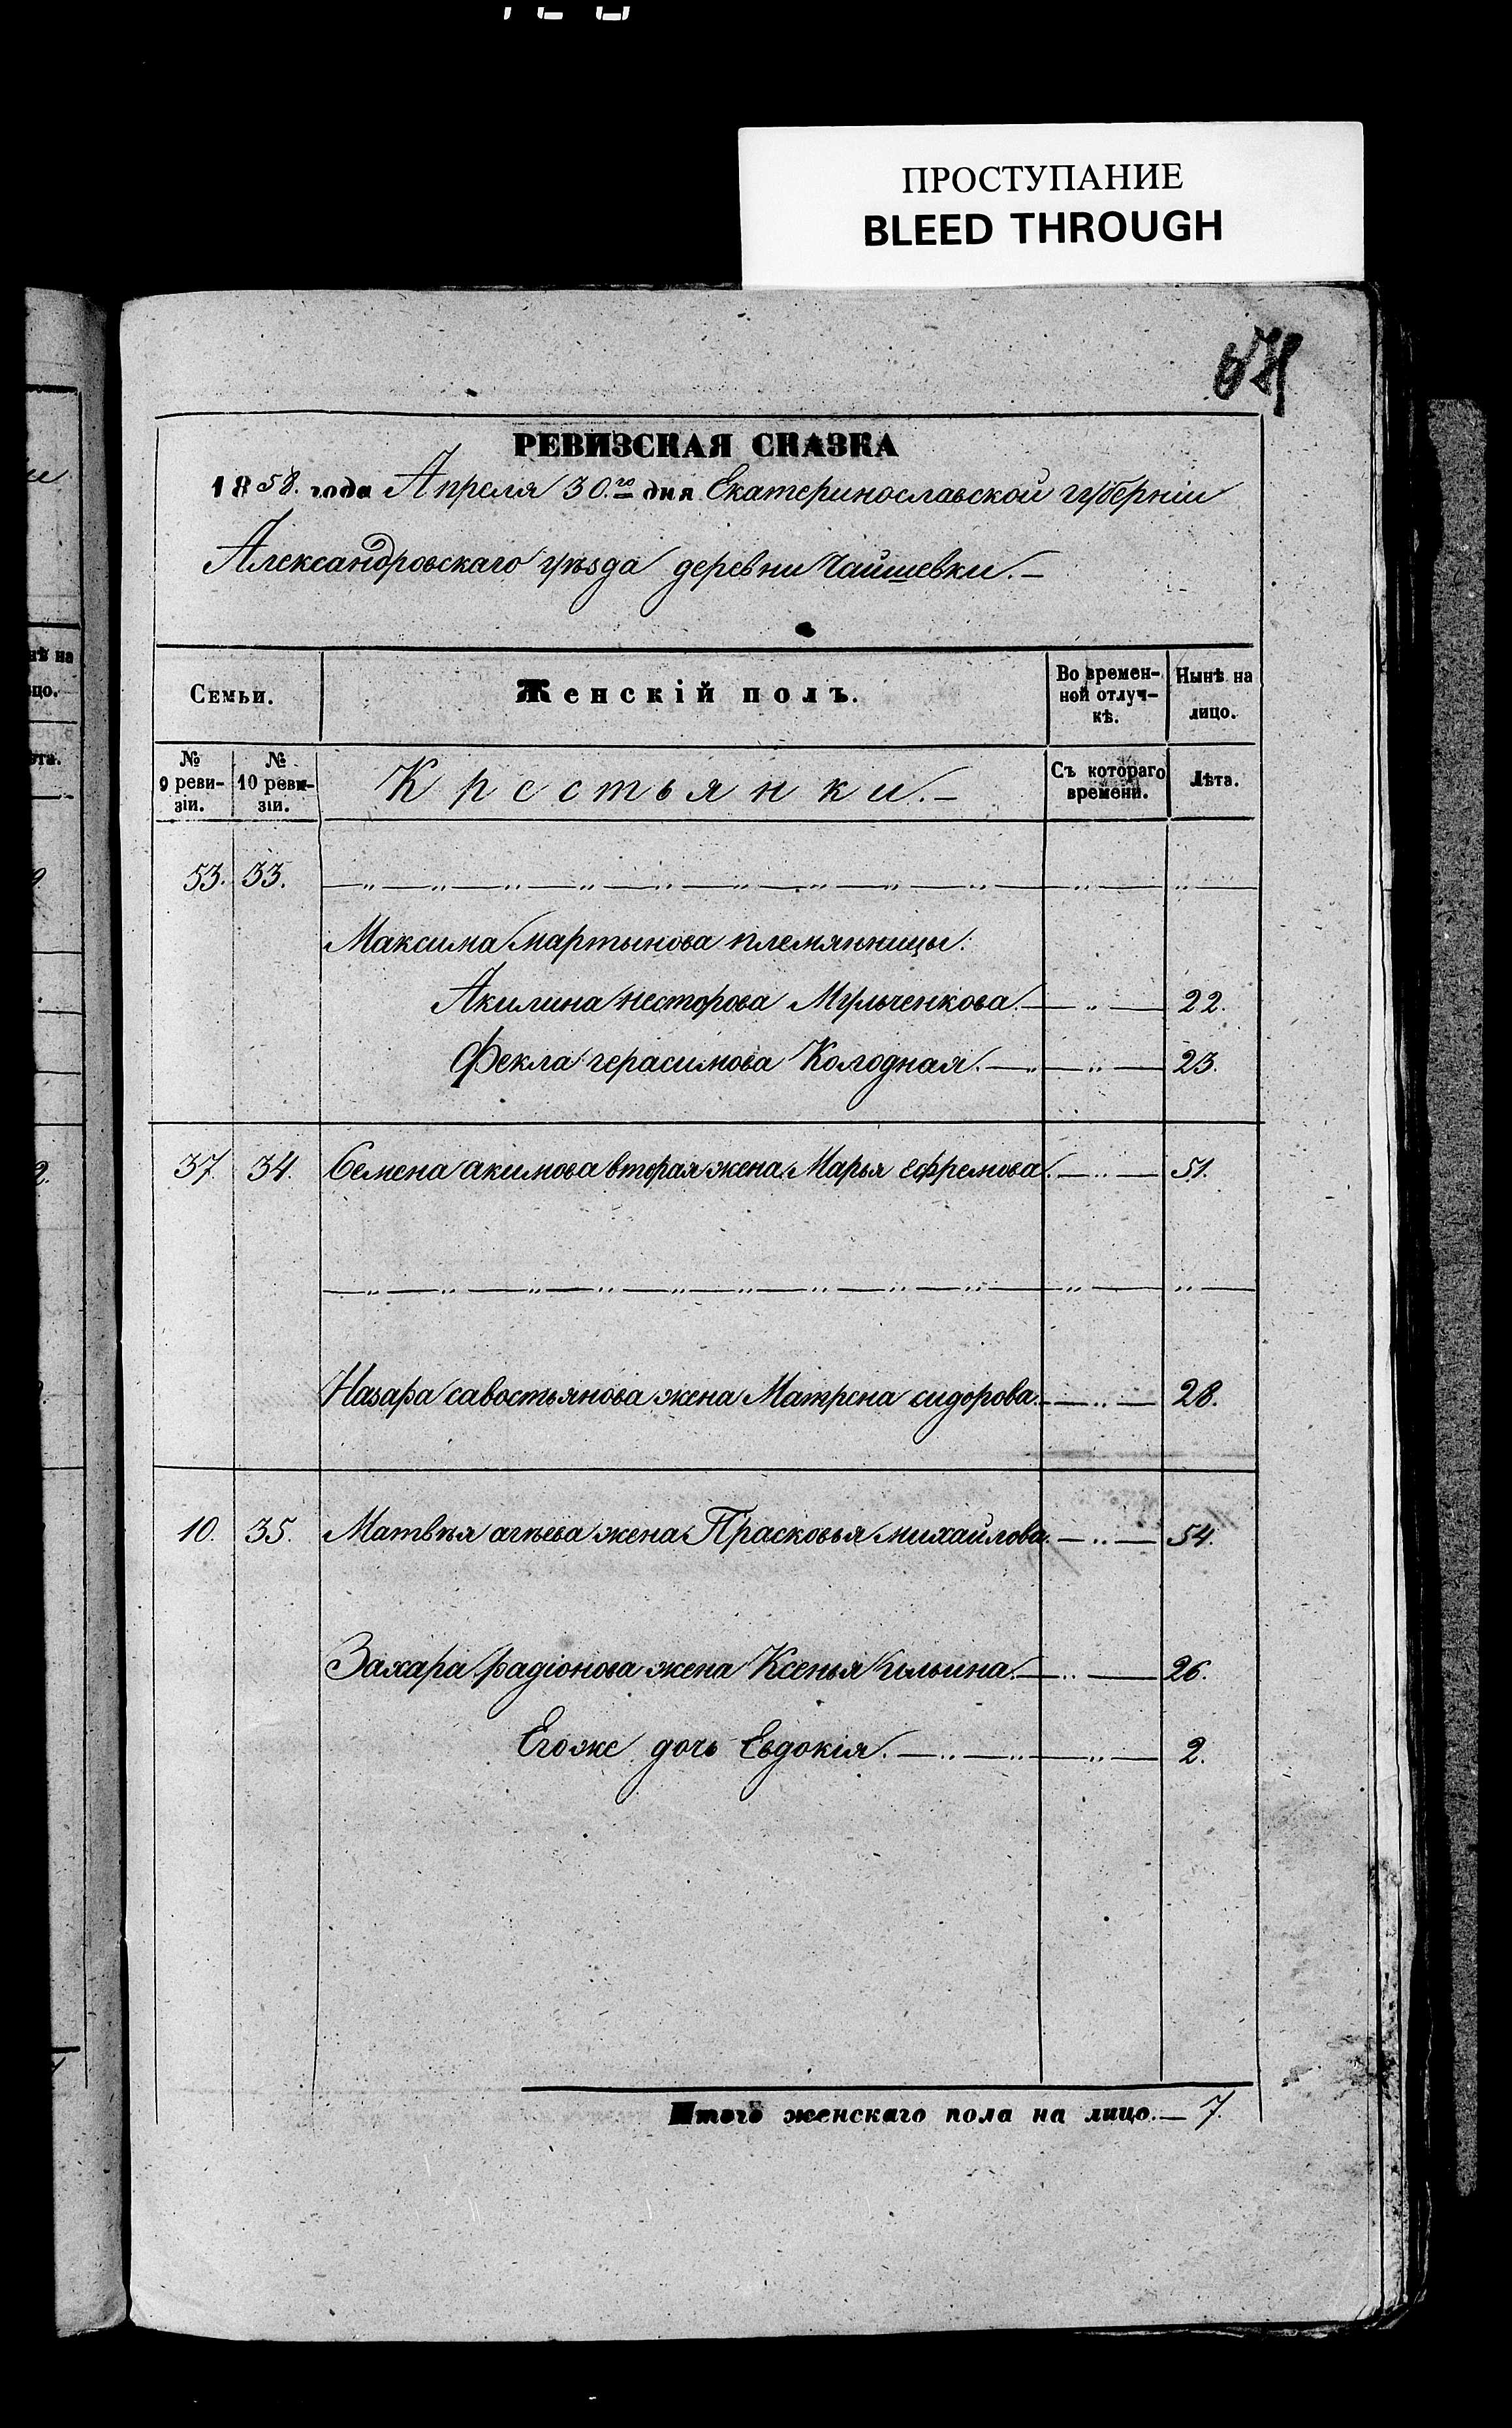 ПРОСТУПАНИЕ
BLEED THROUGH
РЕВИЗСКАЯ СКАЗКА
1858. года Апреля 30.го дня Екатеринославской губерніи
Александровскаго уѣзда деревни Чайшевки.—
Семьи.
Женскій полъ.
Во времен-
ной отлуч-
кѣ.
Нынѣ на
лицо.
№
9 реви-
зіи.
№
10 реви-
зіи.
Крестьянки.—
Съ котораго
времени.
Лѣта.
53. 33.
Максима мартынова племянницы:
Акилина несторова Мульченкова. 22.
Фекла герасимова Колодная. 23.
37. 34. Семена акимова вторая жена Марья ефремова. 51.
Назара савостьянова жена Матрена сидорова. 28.
10. 35. Матвѣя агѣева жена Прасковья михайлова. 54.
Захара радіонова жена Ксенья ильина. 26.
Егоже дочь Евдокія. 2.
Итого женскаго пола на лицо.— 7.